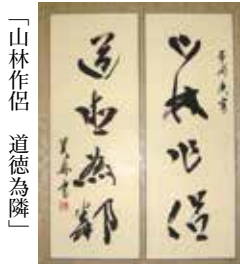 山林作侶
道徳為鄰
「山林作侶　道徳為隣」